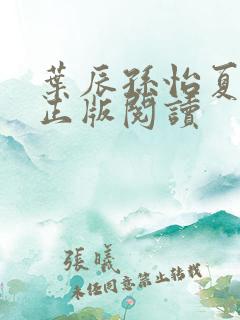 葉辰孫怡夏
正版閱讀
張曦
未經同意禁止轉載